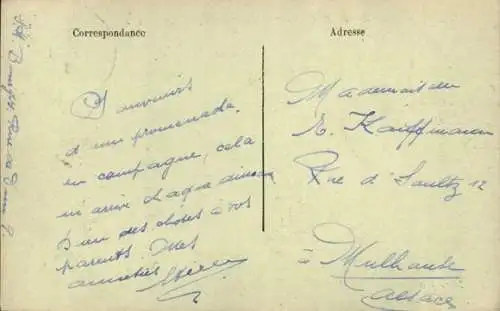 Correspondance
Souvenirs
d'une promenade
en campagne, cela
m'arrive chaque dimanche
des choses à vos
parents. Mes
amitiés
Adresse
Mademoiselle
E. Kauffmann
Rue d'Soultz 12
à Mulhouse
Alsace